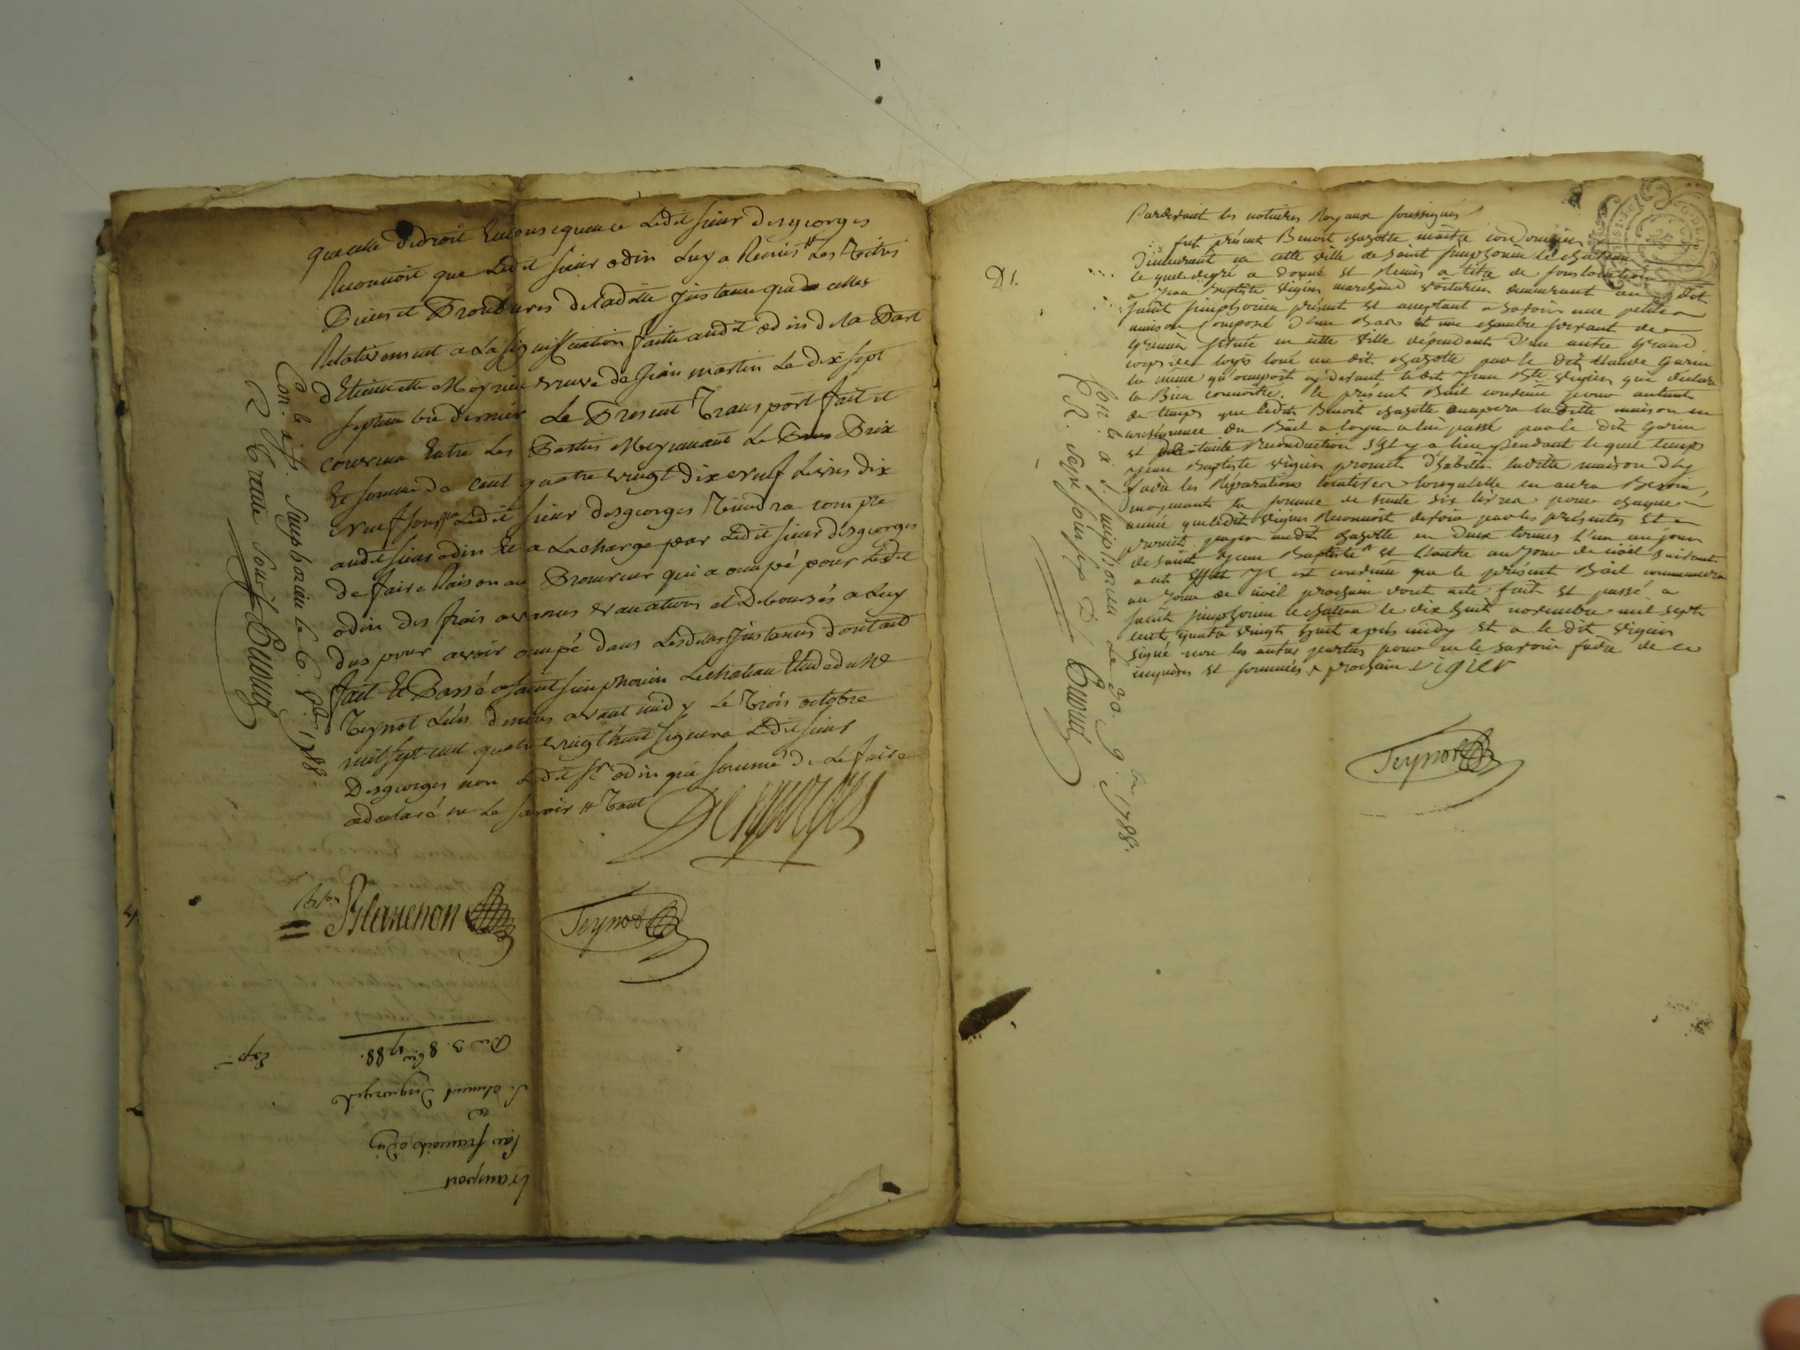 que celle de droit En consequence Ledit sieur Desgeorges
Reconnoit que Ledit sieur odin Luy a Remis les Titres
Pieces et Procedures de ladite Instance que celles
Relativement a La signiffication faite audit odin de la Part
d'Etiennette Meynieu veuve de Jean martin Le dix sept
septembre dernier Le Present Transport fait et
convenu Entre les Parties Moyennant Le Prix
Et somme de cent quatre vingt dix neuf Livres dix
neuf sous Ledit sieur desgeorges Tiendra compte
audit sieur odin Et a La charge par Ledit sieur desgeorges
de faire Raison au Procureur qui a occupé pour Ledit
odin des frais avances vacations et Deboursés a Luy
dus pour avoir occupé dans Lesdites Instances dont acte
fait Et Passé a saint simphorien Le chateau Etude du Me
Teynot L'un de nous avant midy Le Trois octobre
mil sept cent quatre vingt huit signera Ledit sieur
Desgeorges non Ledit Sr odin qui sommé de Le faire
a declaré ne Le savoir
Desgeorges
Blanchon
Teynot
Con. le à St. Simphorien le 6. 8bre 1788.
R. Trente sous
transport
par francois odin
a
Desgeorges
Du 3. 8bre 1788.
Exp.
Pardevant les notaires Royaux soussignés
fut présent Benoit chazotte maître cordonnier
demeurant en cette ville de saint simphorien le chateau
lequel de gré a donné et Remis a titre de souslocation
a Jean Baptiste vigier marchand voiturier demeurant au dit
saint simphorien présent et acceptant a savoir une petite
maison composé d'un Bas et une chambre servant de
Grenier située en cette ville dépendant d'un autre Grand
corps de logis loué au dit chazotte par le dit claude Garin
la même qu'occupoit cy devant le dit Jean Bte vigier qui déclare
la Bien connoitre. le présent Bail convenu pour autant
de temps que ledit Benoit chazotte occupera laditte maison en
du Bail a loyer a lui passé par le dit Garin
et de tacite Reconduction s'il y a lieu pendant lequel temps
Jean Baptiste vigier promet d'habiter laditte maison d'y
faire les Réparations locatives lorsqu'elle en aura Besoin,
moyennant la somme de trente six livres pour chaque
année que ledit vigier Reconnoit devoir par les présentes et
promet payer audit chazotte en deux termes l'un au jour
de saint Jean Baptiste et l'autre au Jour de noël suivant
a cet effet Il est convenu que le présent Bail commencera
au Jour de noël prochain dont acte fait et passé a
saint simphorien le chateau le dix huit novembre mil sept
cent quatre vingt huit après midy et a le dit vigier
signé non les autres parties pour ne le savoir faire de ce
enquises et sommées prochain vigier
Teynot
Con. le à St. Simphorien Le 20. 9bre 1788.
R. Seize sous six d.